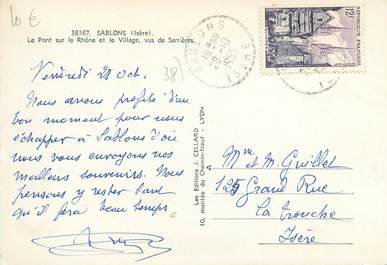 10 €
38367. SABLONS (Isère).
Le Pont sur le Rhône et le Village, vus de Serrières.
38
Vendredi 28 Oct.
Nous avons profité d'un
bon moment pour nous
échapper à Sablons d'où
nous vous envoyons nos
meilleurs souvenirs. Nous
pensons y rester tant
qu'il fera beau temps
Les Editions J. CELLARD
10, montée du Chemin-Neuf - LYON
SABLONS
ISÈRE
18
1955
12F
REPUBLIQUE FRANÇAISE
Mme et M. Guillet
125 Grand Rue
La Tronche
Isère